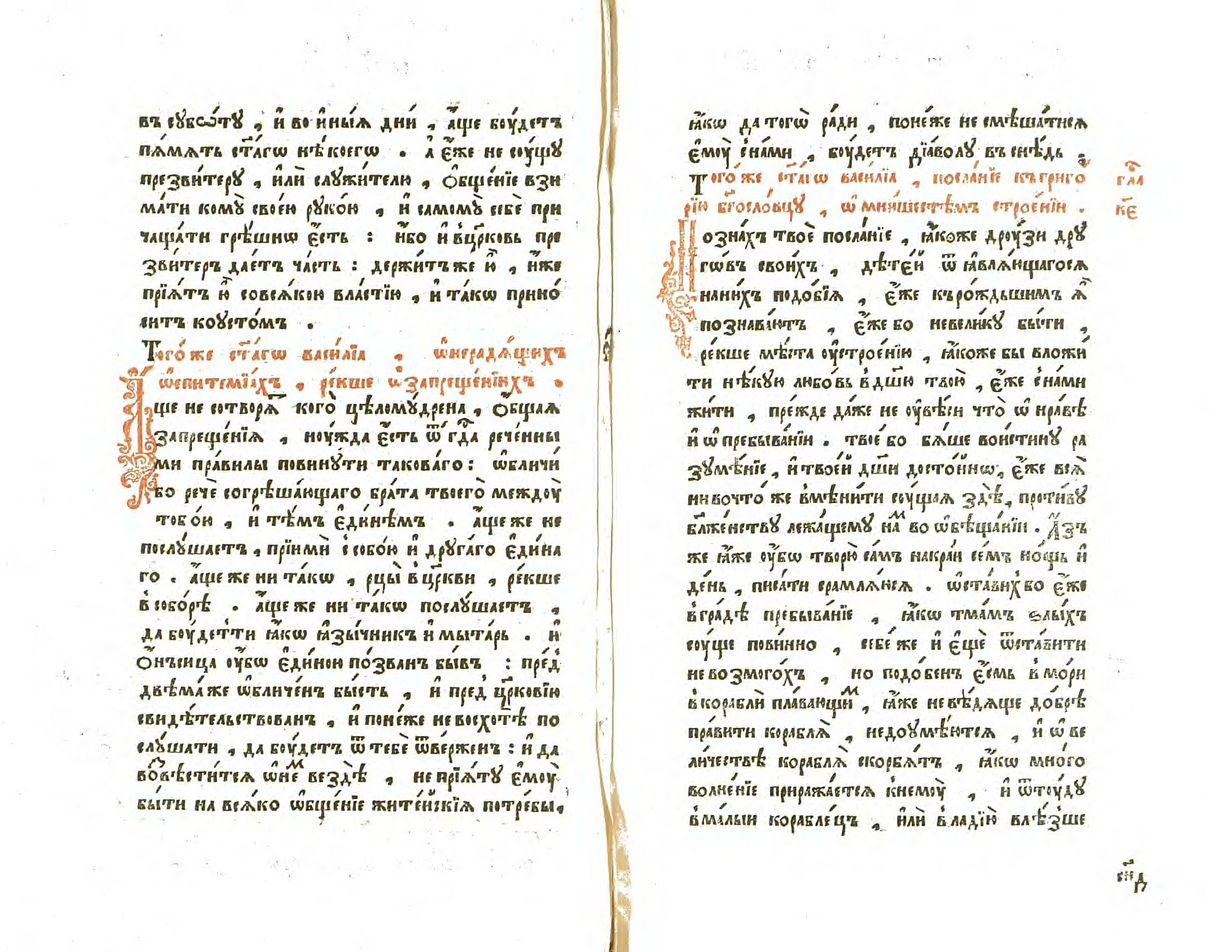 въ сꙋбѡ́тꙋ , и҆ во и҆ны́ѧ днѝ , а҆́ще бꙋ́детъ
па́мѧть ст҃а́гѡ нѣ́коегѡ . а҆ є҆́же не сꙋ́щꙋ
презви́терꙋ , и҆лѝ слꙋжи́телю , ѻ҆бще́нїе взи
ма́ти комꙋ̀ свое́ю рꙋко́ю , и҆ самомꙋ̀ себѐ при
чаща́ти грѣ́шнѡ є҆́сть : и҆́бо и҆ вцр҃ковь пре
зви́теръ дае́тъ ча́сть : держи́тъ же и҆̀ , и҆́же
прїѧ́тъ и҆̀ совсѧ́кою вла́стїю , и҆ та́кѡ прино́
ситъ коусто́мъ .
Того́же ст҃а́гѡ васи́лїа , ѡ҆нерадѧ́щихъ
ѡ҆епитемїа́хъ , ре́кше ѡ҆запреще́нїихъ .
А҆́ще не сотворѧ́тъ кого̀ цѣломꙋ́дрена , ѻ҆́бщаѧ
запреще́нїѧ , нꙋ́жда є҆́сть ѿ гд҃а рече́нны
ми пра́вилы повинꙋ́ти таковаго : ѡ҆бличи́
бо речѐ согрѣша́ющаго бра́та твоего̀ междꙋ̀
тобо́ю , и҆ тѣ́мъ є҆ди́нѣмъ . а҆́ще же не
послꙋ́шаетъ , прїимѝ с собо́ю и҆ дрꙋга́го є҆ди́на
го . а҆́ще же ни та́кѡ , рцы̀ в цр҃кви , ре́кше
в собо́рѣ . а҆́ще же ни та́кѡ послꙋ́шаетъ ,
да бꙋ́детти ꙗ҆́кѡ ꙗ҆зы́чникъ и҆ мыта́рь . и҆
ѻ҆нъсица ᲂу҆́бѡ є҆ди́ною по́званъ бы́въ : пред̾
двѣма́же ѡ҆бличе́нъ бы́сть , и҆ пред̾ цр҃ковїю
свидѣ́тельствованъ , и҆ поне́же не восхотѣ̀ по
слꙋ́шати , да бꙋ́детъ ѿ тебѐ ѿве́рженъ : и҆ да
во́звѣсти́тсѧ ѡ҆неⷨ вездѣ̀ , не прїѧ́тꙋ є҆мꙋ̀
бы́ти на всѧ́ко ѡ҆бще́нїе жите́йскїѧ потре́бы,
ꙗ҆́кѡ да тогѡ̀ ра́ди , поне́же не смѣша́тисѧ
є҆мꙋ̀ с на́ми , бꙋ́детъ дїа́волꙋ въ снѣ́дь .
Того́ же ст҃а́гѡ васи́лїа , посла́нїе къ григо́
рїю бг҃осло́вцꙋ , ѡ҆ мни́шестѣмъ строе́нїи .
гл҃а
к҃є
Позна́хъ твоѐ посла́нїе , ꙗ҆́коже дрꙋ́зи дрꙋ
го́въ свои́хъ , дѣ́те́й ѿ ꙗ҆влѧ́ющагосѧ
наних̾ подо́бїѧ , є҆́же къро́ждьшимъ ѧ҆̀
познава́ютъ , є҆́же бо невели́кꙋ бы́ти ,
ре́кше мѣ́ста ᲂу҆строе́нїю , ꙗ҆́коже бы вложи́
ти нѣ́кꙋю любо́вь в дш҃ꙋ твою̀ , є҆́же с на́ми
жи́ти , пре́жде да́же не ᲂу҆вѣ́си что̀ ѡ҆ нра́вѣ
и҆ ѡ҆ пребыва́нїи . твое́ бо бѧ́ше вои́стинꙋ ра
зꙋмѣ́нїе , и҆ твое́й дш҃и досто́йнѡ, є҆́же всѧ̑
нивочто́ же вмѣни́ти сꙋ́щаѧ здѣ̀, проти́вꙋ
бл҃же́нствꙋ лежа́щемꙋ наⷨ во ѡ҆бѣща́нїи . А҆́зъ
же ꙗ҆̀же ᲂу҆́бѡ творю̀ са́мъ на кра́и се́мъ но́щь и҆
де́нь , писа́ти срамлѧ́юсѧ . ѡ҆ста́вих̾ бо є҆́же
в гра́дѣ пребыва́нїе , ꙗ҆́кѡ тма́мъ ѕлы́хъ
сꙋ́ще пови́нно , себе́ же и҆ є҆щѐ ѿста́вити
не возмого́хъ , но подо́бенъ є҆́смь в мо́ри
в кораблѝ пла́вающиⷨ , ꙗ҆̀же невѣ́дѧще до́брѣ
пра́вити кораблѧ̀ , недоꙋмѣ́ютсѧ , и҆ ѡ҆ ве
ли́чествѣ кораблѧ̀ скорбѧ́тъ , ꙗ҆́кѡ мно́го
волне́нїе приража́етсѧ к немꙋ̀ , и҆ ѿтꙋ́дꙋ
в ма́лыи кораблецъ , и҆лѝ в ладїю̀ влѣ́зше
сн҃д